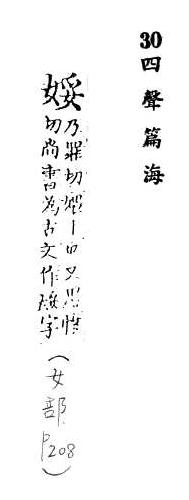 30四聲篇海
娞
乃罪切又思惟
切尚書為古文作字
(女部 P208)